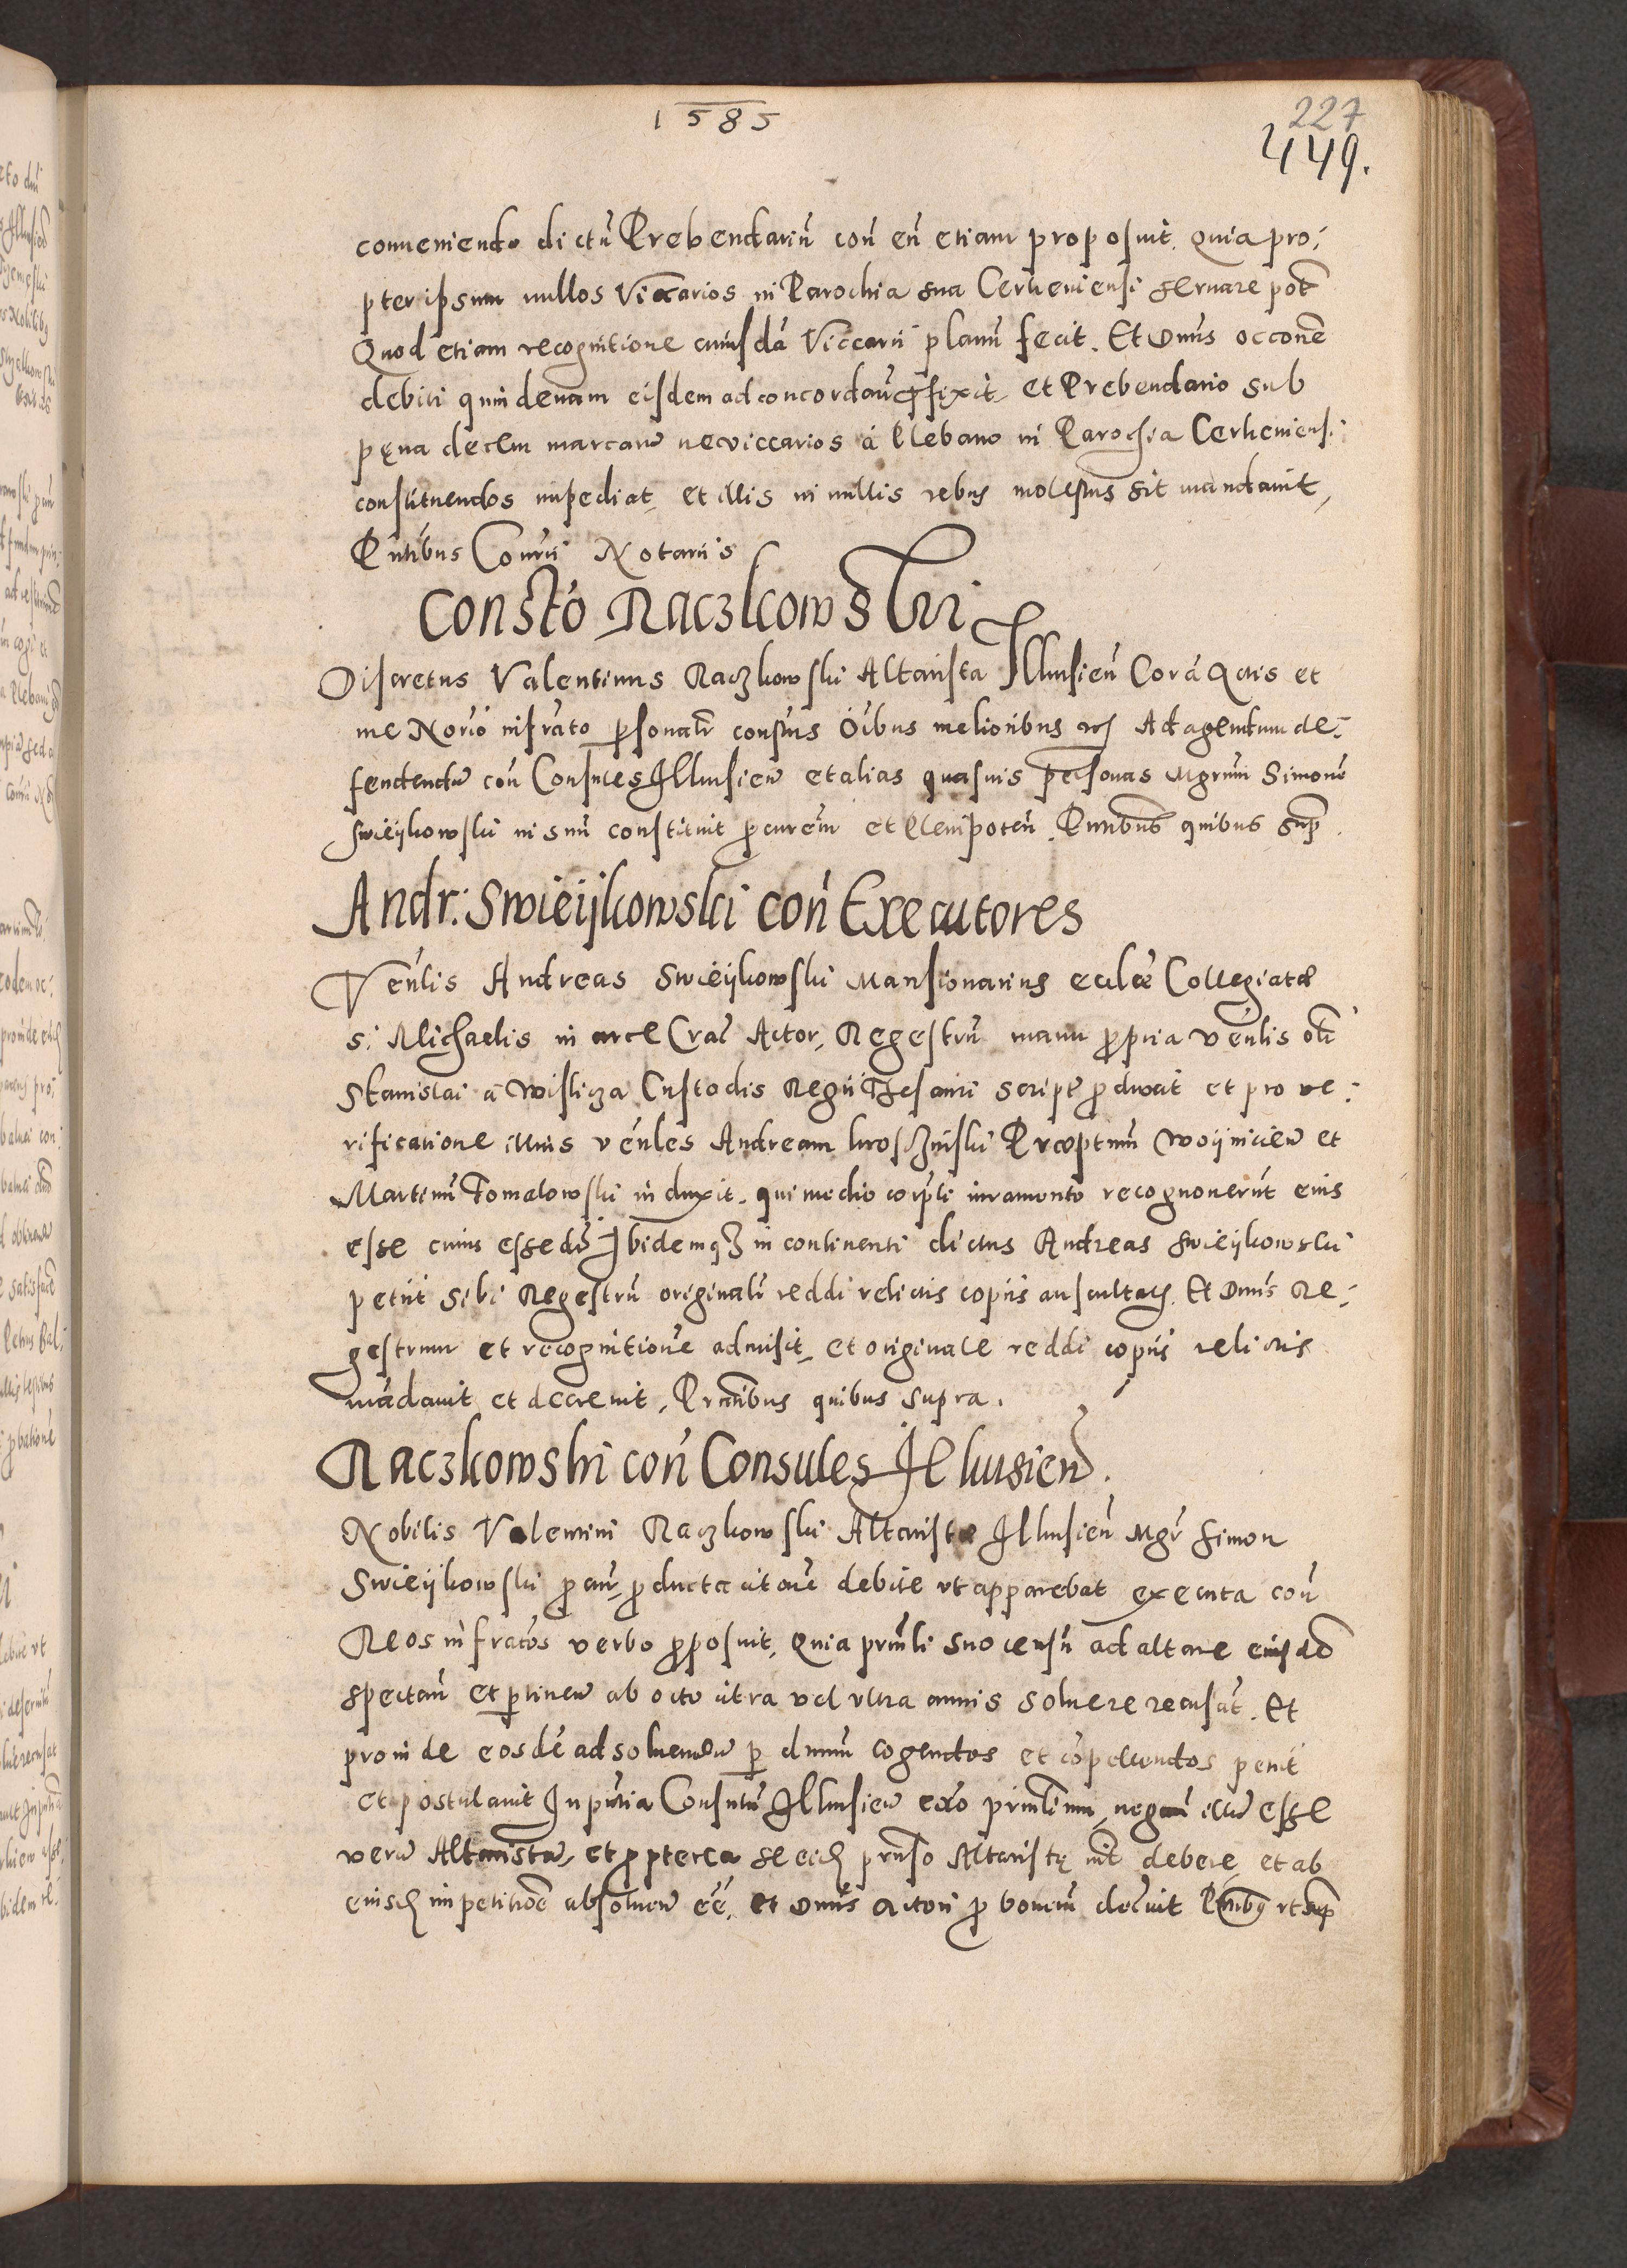 1585
227
449.
conueniendo dictũ Prebendariũ coñ eũ etiam proposuit. Quia pro:
pter ipsum nullos Viccarios in Parochia sua Cerheniensi seruare pot̃
Quod etiam recognitione cuiusdã Viccarii planũ fecit. Et Dnus occone
debiti quindenam eisdem ad concordan̄ p̄fixit et Prebendario sub
pęna decem marcarũ ne viccarios á Plebano in Parochia Cerheniensi
constituendos impediat et illis in nullis rebus molestus sit mandauit,
Pñtibus Cours Notariis
Consto Raczkowski
Discretus Valentinus Raczkowski Altarista Ilkusien̄ Corã Actis et
me Norio infrãto p̄sonalr̄ constus Oĩbus melioribus Ad agendum de:
fendendũ coñ Consules Ilkusien̄ et alias quasuis personas Mgrum Simonẽ
Swieijkowski in suũ constituit p̄curem et Plenipoten̄. Pñtibus quibus sup̄.
Andr: Swieijkowski coñ Executores
Venlis Andreas Swieijkowski Mansionarius ecclæ Collegiatæ
S: Michaelis in arce Crac̄ Actor, Regestrũ manu p̄pria venlis oli
Stanislai á Wisliza Custodis Regii Thesauri script p̄duxit et pro ve:
rificatione illius venles Andream Præptum Woijnicien̄ et
Martinũ Tomalowski induxit. qui medio corp̄li iuramento recognouerũt eius
esse cuius esse dr̄ Ibidemq3 in continenti dictus Andreas Swieijkowski
petiit sibi Regestrũ originalr̄ reddi relictis copiis auscultatis. Et Dnus Re:
gestrum et recognitionẽ admisit, et originale reddi copiis relictis
mãdauit et decreuit, Pñtibus quibus supra.
Raczkowski coñ Consules Ilkusien̄.
Nobilis Valentini Raczkowski Altaristæ Ilkusien̄ Mgr̄ Simon
Swieijkowski p̄cur̄ p̄ducta citaoñe debite vt apparebat executa coñ
Reos infrãtos verbo p̄posuit, Quia prinli suo censũ ad altare eiusdẽ
spectan̄ et p̄tinen̄ ab octo citra vel vltra annis soluere recusãt. Et
proinde eosdẽ ad soluendũ p̄ dnum cogendos et cõpellendos petiit
et postulauit In pñtia Consulũ Ilkusien̄ prinlium, negan̄ illũ esse
verũ Altaristam, et p̄pterea se eidẽ prænso Altaristę nil debere et ab
eiusd impetitoẽ absoluen̄ eẽ. Et Dnus actori p̄bonem decreuit Pñtibus vt sup̄